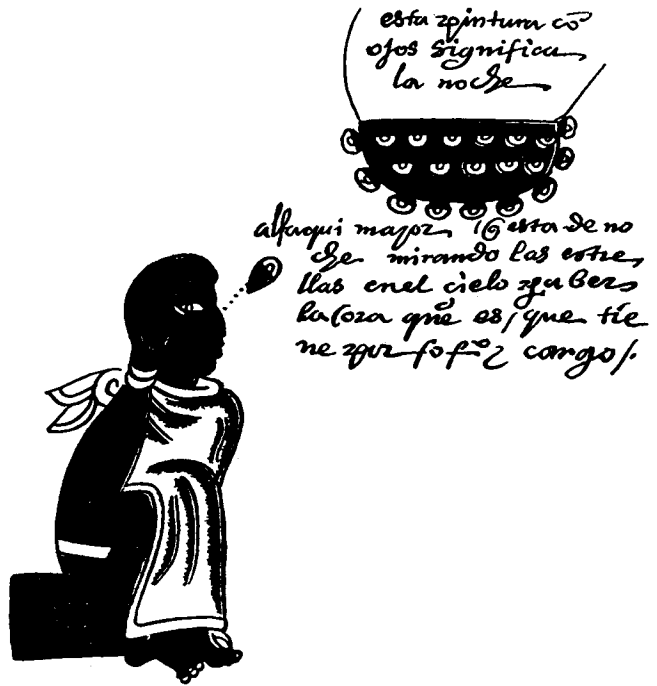 esta pintura cō
ojos significa
la noche
alfaqui mayor q esta de no
che mirando las estre
llas en el cielo pa ber
la ora que es / que tie
ne por cargo /.